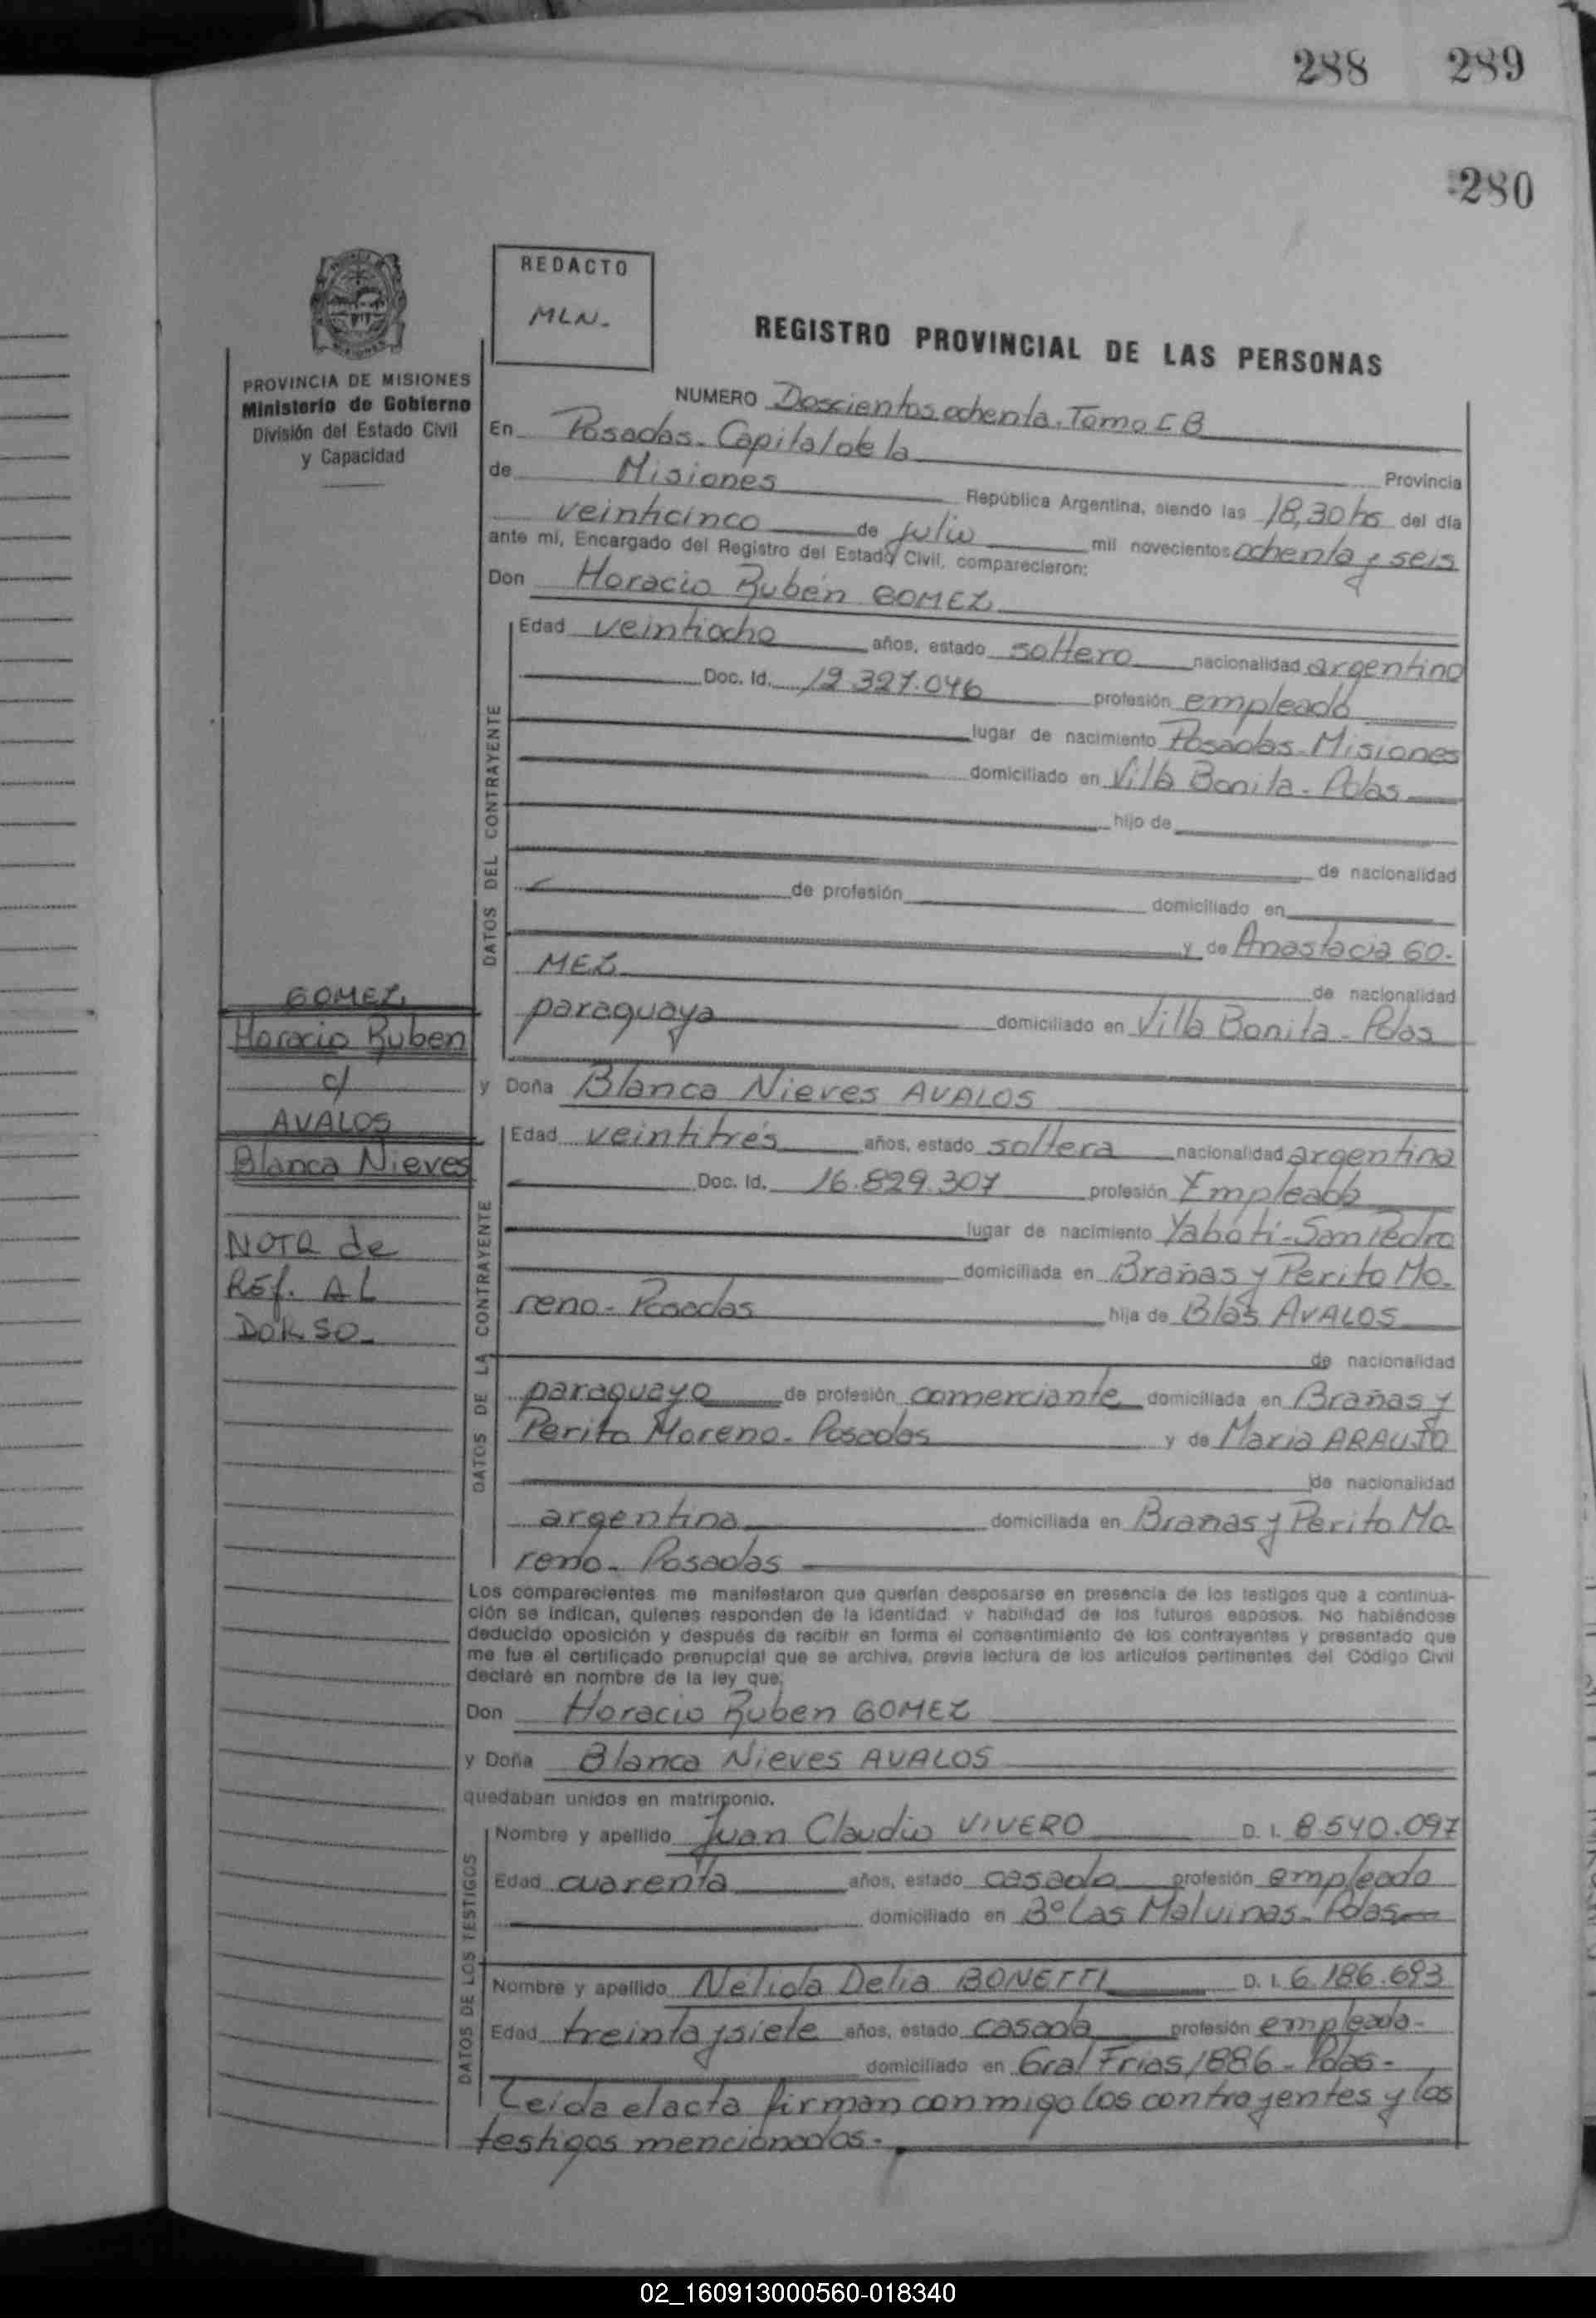 288 289
280
REDACTO
MLN.
REGISTRO PROVINCIAL DE LAS PERSONAS
PROVINCIA DE MISIONES
Ministerio de Gobierno
División del Estado Civil
y Capacidad
NUMERO Doscientos ochenta. Tomo I B
En Posadas. Capital de la Provincia
de Misiones República Argentina, siendo las 18,30 hs del día
veinticinco de julio mil novecientos ochenta y seis
ante mi, Encargado del Registro del Estado Civil, comparecieron:
Don Horacio Rubén GOMEZ
DATOS DEL CONTRAYENTE
Edad veintiocho años, estado soltero nacionalidad argentino
Doc. Id. 12.327.046 profesión empleado
lugar de nacimiento Posadas-Misiones
domiciliado en Villa Bonita - Pdas
hijo de
de nacionalidad
de profesión domiciliado en
y de Anastacia GO-
MEZ de nacionalidad
paraguaya domiciliado en Villa Bonita - Pdas
GOMEZ
Horacio Ruben
c/
AVALOS
Blanca Nieves
NOTA de
REf. AL
DORSO-
y Doña Blanca Nieves AVALOS
DATOS DE LA CONTRAYENTE
Edad veintitrés años, estado soltera nacionalidad argentina
Doc. Id. 16.829.307 profesión Empleada
lugar de nacimiento Yabotí-San Pedro
domiciliada en Brañas y Perito Mo-
reno - Posadas hija de Blás AVALOS
de nacionalidad
paraguayo de profesión comerciante domiciliada en Brañas y
Perito Moreno - Posadas y de Maria ARAUJO
de nacionalidad
argentina domiciliada en Brañas y Perito Mo-
reno - Posadas
Los comparecientes me manifestaron que querían desposarse en presencia de los testigos que a continua-
ción se indican, quienes responden de la identidad y habilidad de los futuros esposos. No habiéndose
deducido oposición y después de recibir en forma el consentimiento de los contrayentes y presentado que
me fue el certificado prenupcial que se archiva, previa lectura de los artículos pertinentes del Código Civil
declaré en nombre de la ley que,
Don Horacio Ruben GOMEZ
y Doña Blanca Nieves AVALOS
quedaban unidos en matrimonio.
DATOS DE LOS TESTIGOS
Nombre y apellido Juan Claudio VIVERO D. I. 8.540.097
Edad cuarenta años, estado casado profesión empleado
domiciliado en Bº Las Malvinas- Pdas
Nombre y apellido Nélida Delia BONETTI D. I. 6.186.693
Edad treinta y siete años, estado casada profesión empleada-
domiciliado en Gral Frias 1886 - Pdas-
Leída el acta firman conmigo los contrayentes y los
testigos mencionados.-
02_160913000560-018340